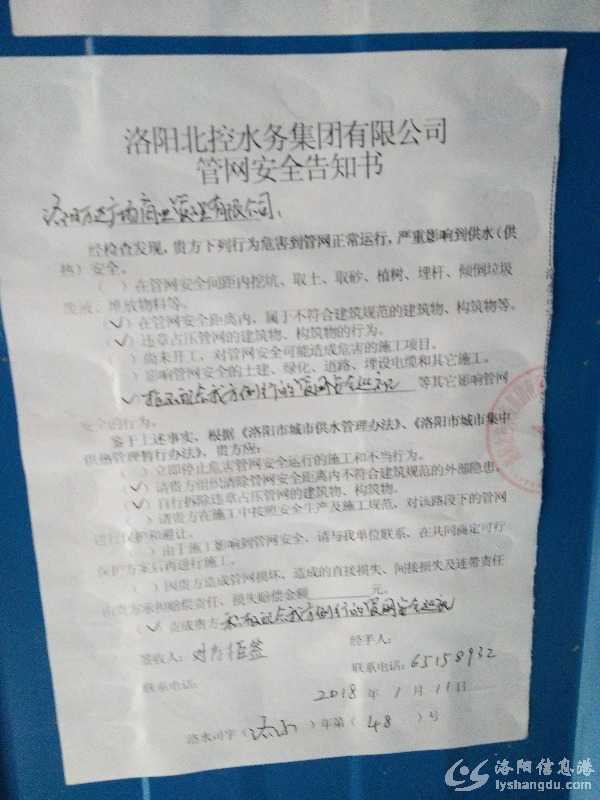 洛阳北控水务集团有限公司
管网安全告知书
洛阳万达广场商业管理有限公司：
经检查发现，贵方下列行为危害到管网正常运行，严重影响到供水（供
热）安全。
（ ）在管网安全间距内挖坑、取土、取砂、植树、埋杆、倾倒垃圾
废液、堆放物料等。
（✓）在管网安全距离内，属于不符合建筑规范的建筑物、构筑物等。
（✓）违章占压管网的建筑物、构筑物的行为。
（ ）尚未开工，对管网安全可能造成危害的施工项目。
（ ）影响管网安全的土建、绿化、道路、埋设电缆和其它施工。
（✓）拒不配合我方例行的管网安全巡视 等其它影响管网
安全的行为。
鉴于上述事实，根据《洛阳市城市供水管理办法》、《洛阳市城市集中
供热管理暂行办法》，贵方应：
（ ）立即停止危害管网安全运行的施工和不当行为。
（✓）请贵方组织清除管网安全距离内不符合建筑规范的外部隐患。
（✓）自行拆除违章占压管网的建筑物、构筑物。
（ ）请贵方在施工中按照安全生产及施工规范，对该路段下的管网
进行保护和避让。
（ ）由于施工影响到管网安全，请与我单位联系，在共同商定可行
保护方案后再进行施工。
（ ）因贵方造成管网损坏，造成的直接损失、间接损失及连带责任
由贵方承担赔偿责任，损失赔偿金额 元。
（✓）责成贵方积极配合我方例行的管网安全巡视
签收人：对方拒签 经手人：
联系电话： 联系电话：65158932
2018 年 1 月 11 日
洛水司字（ ）年第（48）号
洛阳信息港
lyshangdu.com